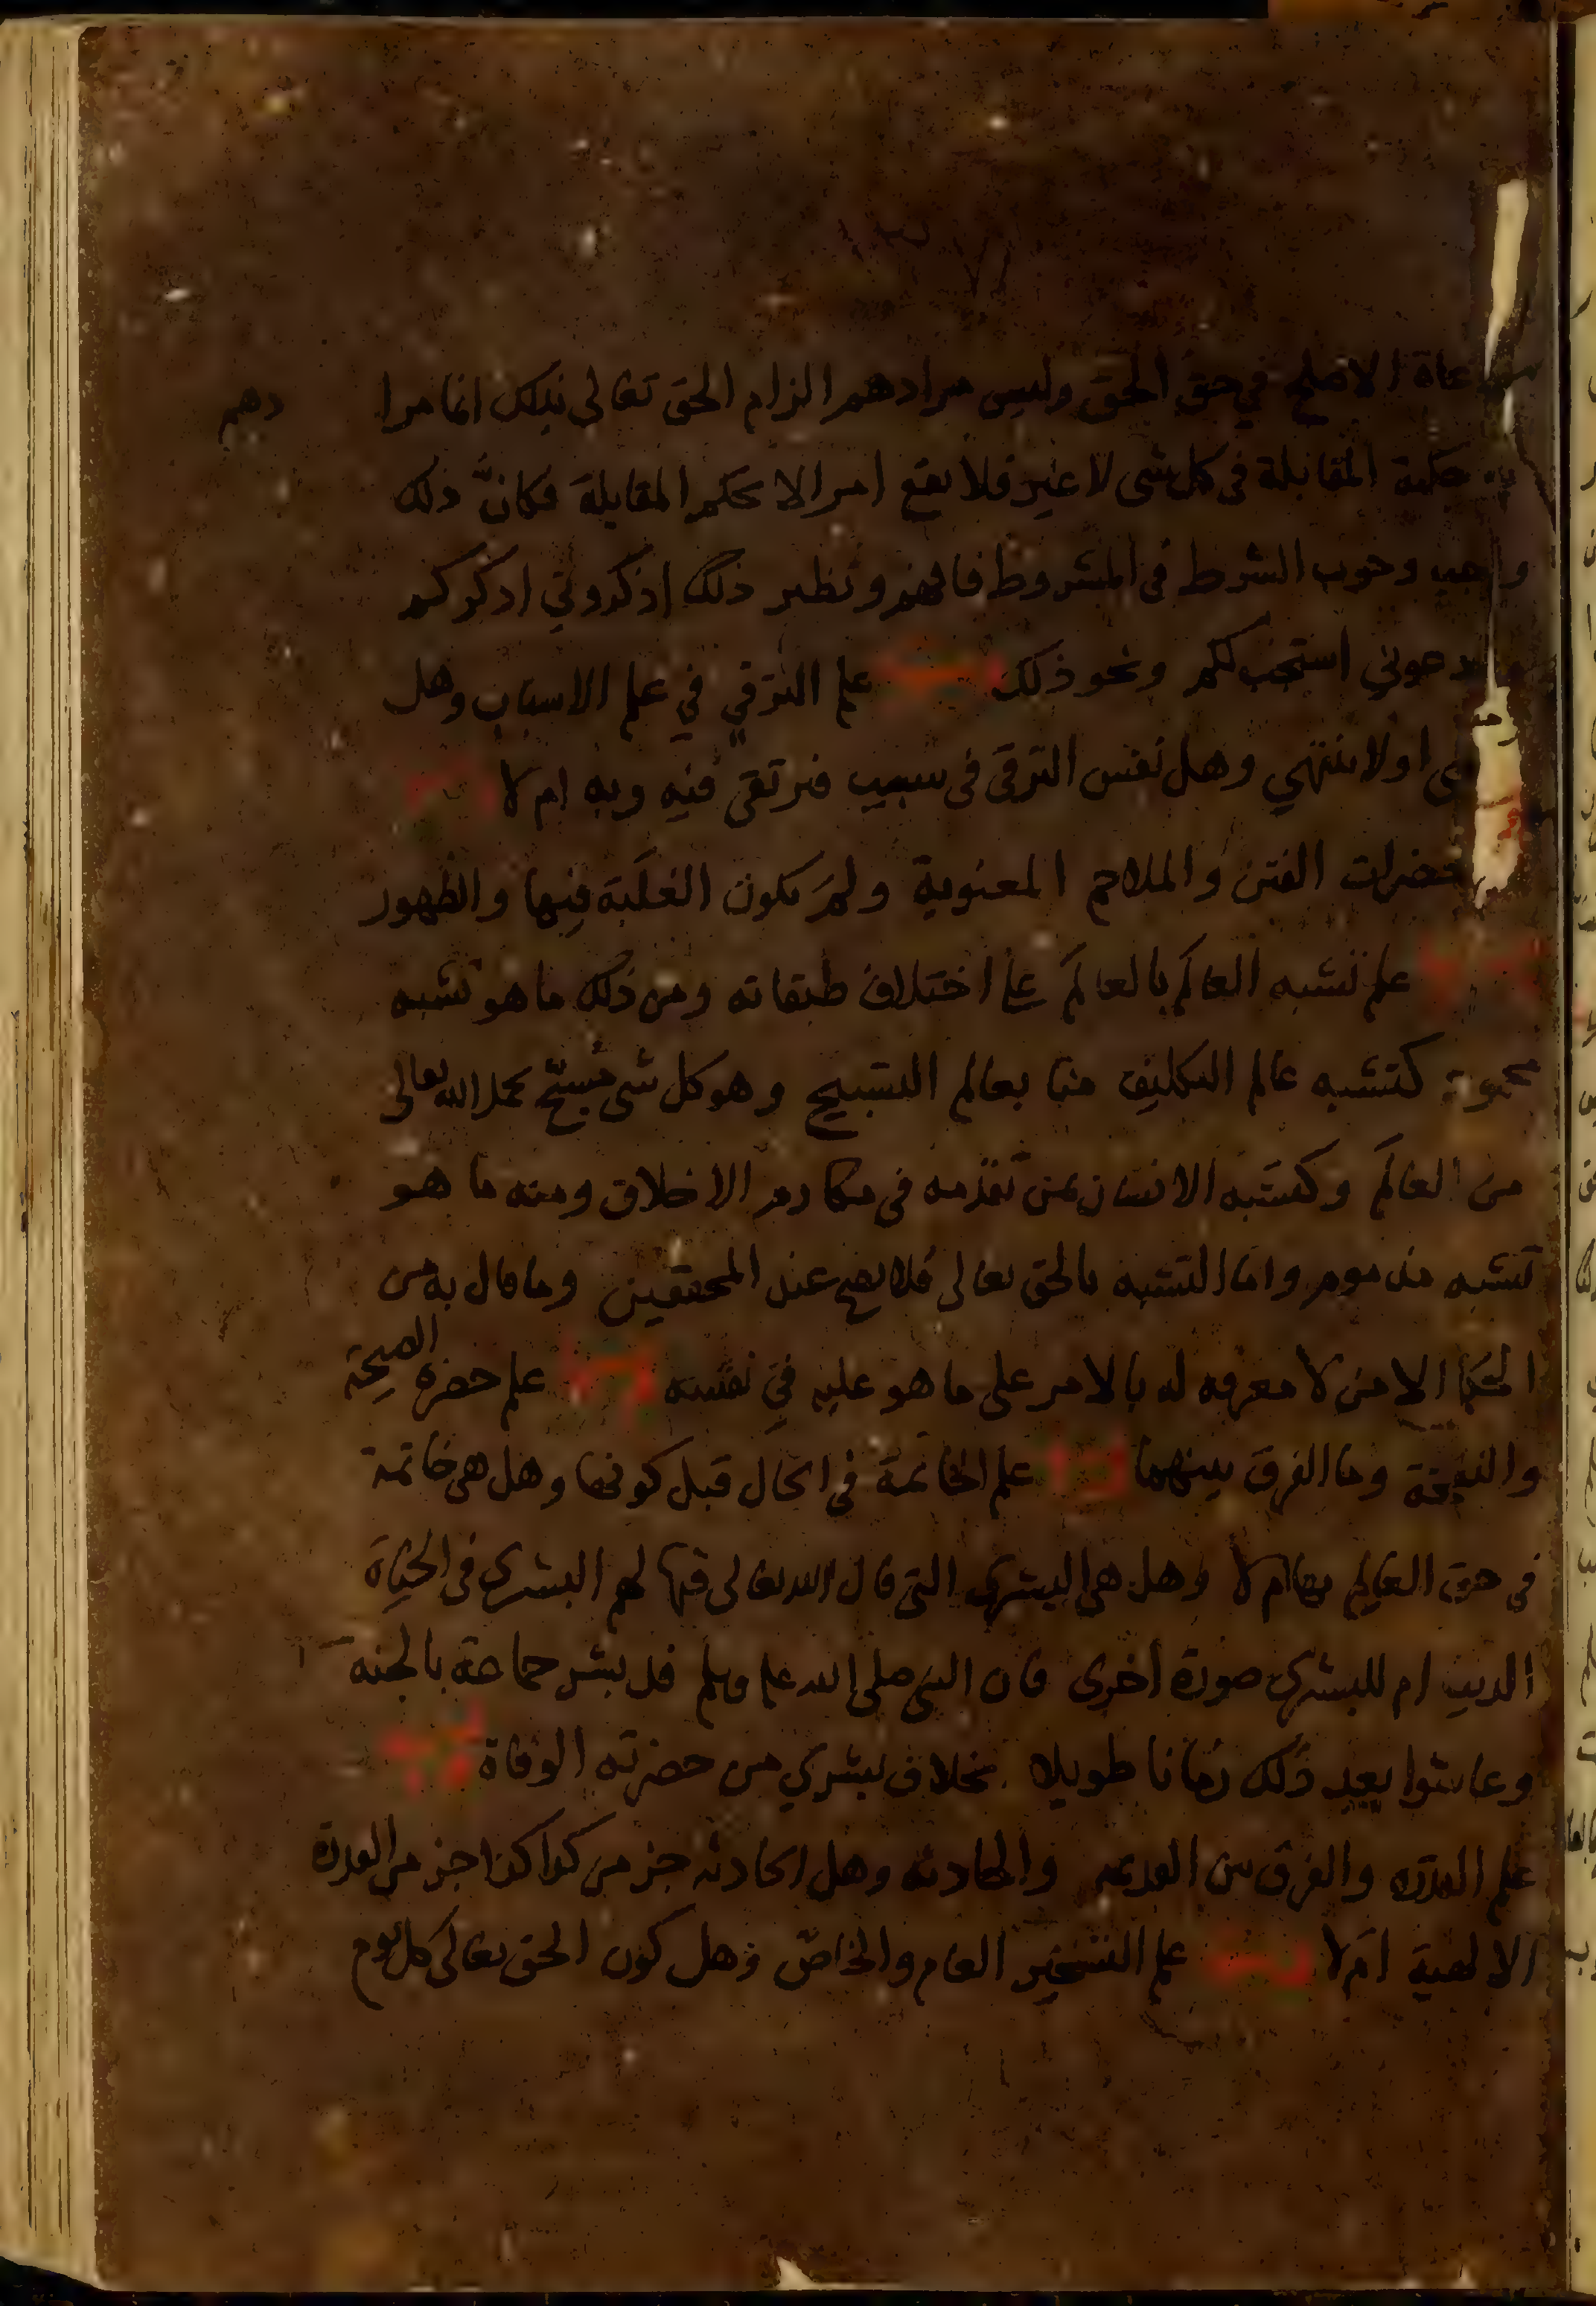 الاصلح في حق الحق وليس مرادهم الزام الحق تعالى بذلك انما مرا دهم
حكمة المقابلة في كل شى لا غير فلا يقع امر الا بحكم المقابلة فكانَّ ذلك
واجب وجوب الشرط في المشروط فافهم ونظير ذلك اذكروني اذكركم
استجب لكم ونحو ذلك علم الترقي في علم الاسباب وهل
او لا ينتهي وهل نفس الترقى فى سبب فيرتقى فيه وبه ام لا
حضرات الفتن والملاحم المعنوية ولمَ يكون الغلَبة فيها والظهور
علم تشبه العالَم بالعالَم على اختلاف طبقاته ومن ذلك ما هو تشبه
كتشبه عالم التكليف منا بعالم التسبيح وهو كل شى مُسبّح بحمد الله تعالى
من العالَم وكتشبه الانسان بمن تقدّمه فى مكارم الاخلاق ومنه ما هو
تشبه مذموم واما التشبه بالحق تعالى فلا يصح عند المحققين وما قال به من
الحكما الا من لا معرفه له بالامر على ما هو عليه في نفسه علم حضرة الصيحة
والنفخة وما الفرق بينهما علم الخاتمة في الحال قبل كونها وهل هى خاتمة
في حق العالم بها ام لا وهل هي البشرى التى قال الله تعالى فيها لهم البشرى فى الحياة
الدنيا ام للبشرى صورة أخرى فان النبى صلى الله عليه وسلم قد بشر جماعة بالجنة
وعاشوا بعد ذلك زمانا طويلا بخلاف بشري من حضرته الوفاة
علم القدرة والفرق بين القديمة والحادثه وهل الحادثه جز من كذا كذا جز من القدرة
الالهية ام لا علم التسخير العام والخاصّ وهل كون الحق تعالى كل يوم